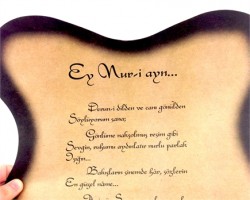 Ey Nur-i ayn...
Derun-i dilden ve can gönülden
Söylüyorum sana;
Gönlüme nakşolmuş resim gibi
Sevgin, ruhumu aydınlatır nurlu parlak
Işığın...
Bakışların sinemde hâr, sözlerin
En güzel nâme...